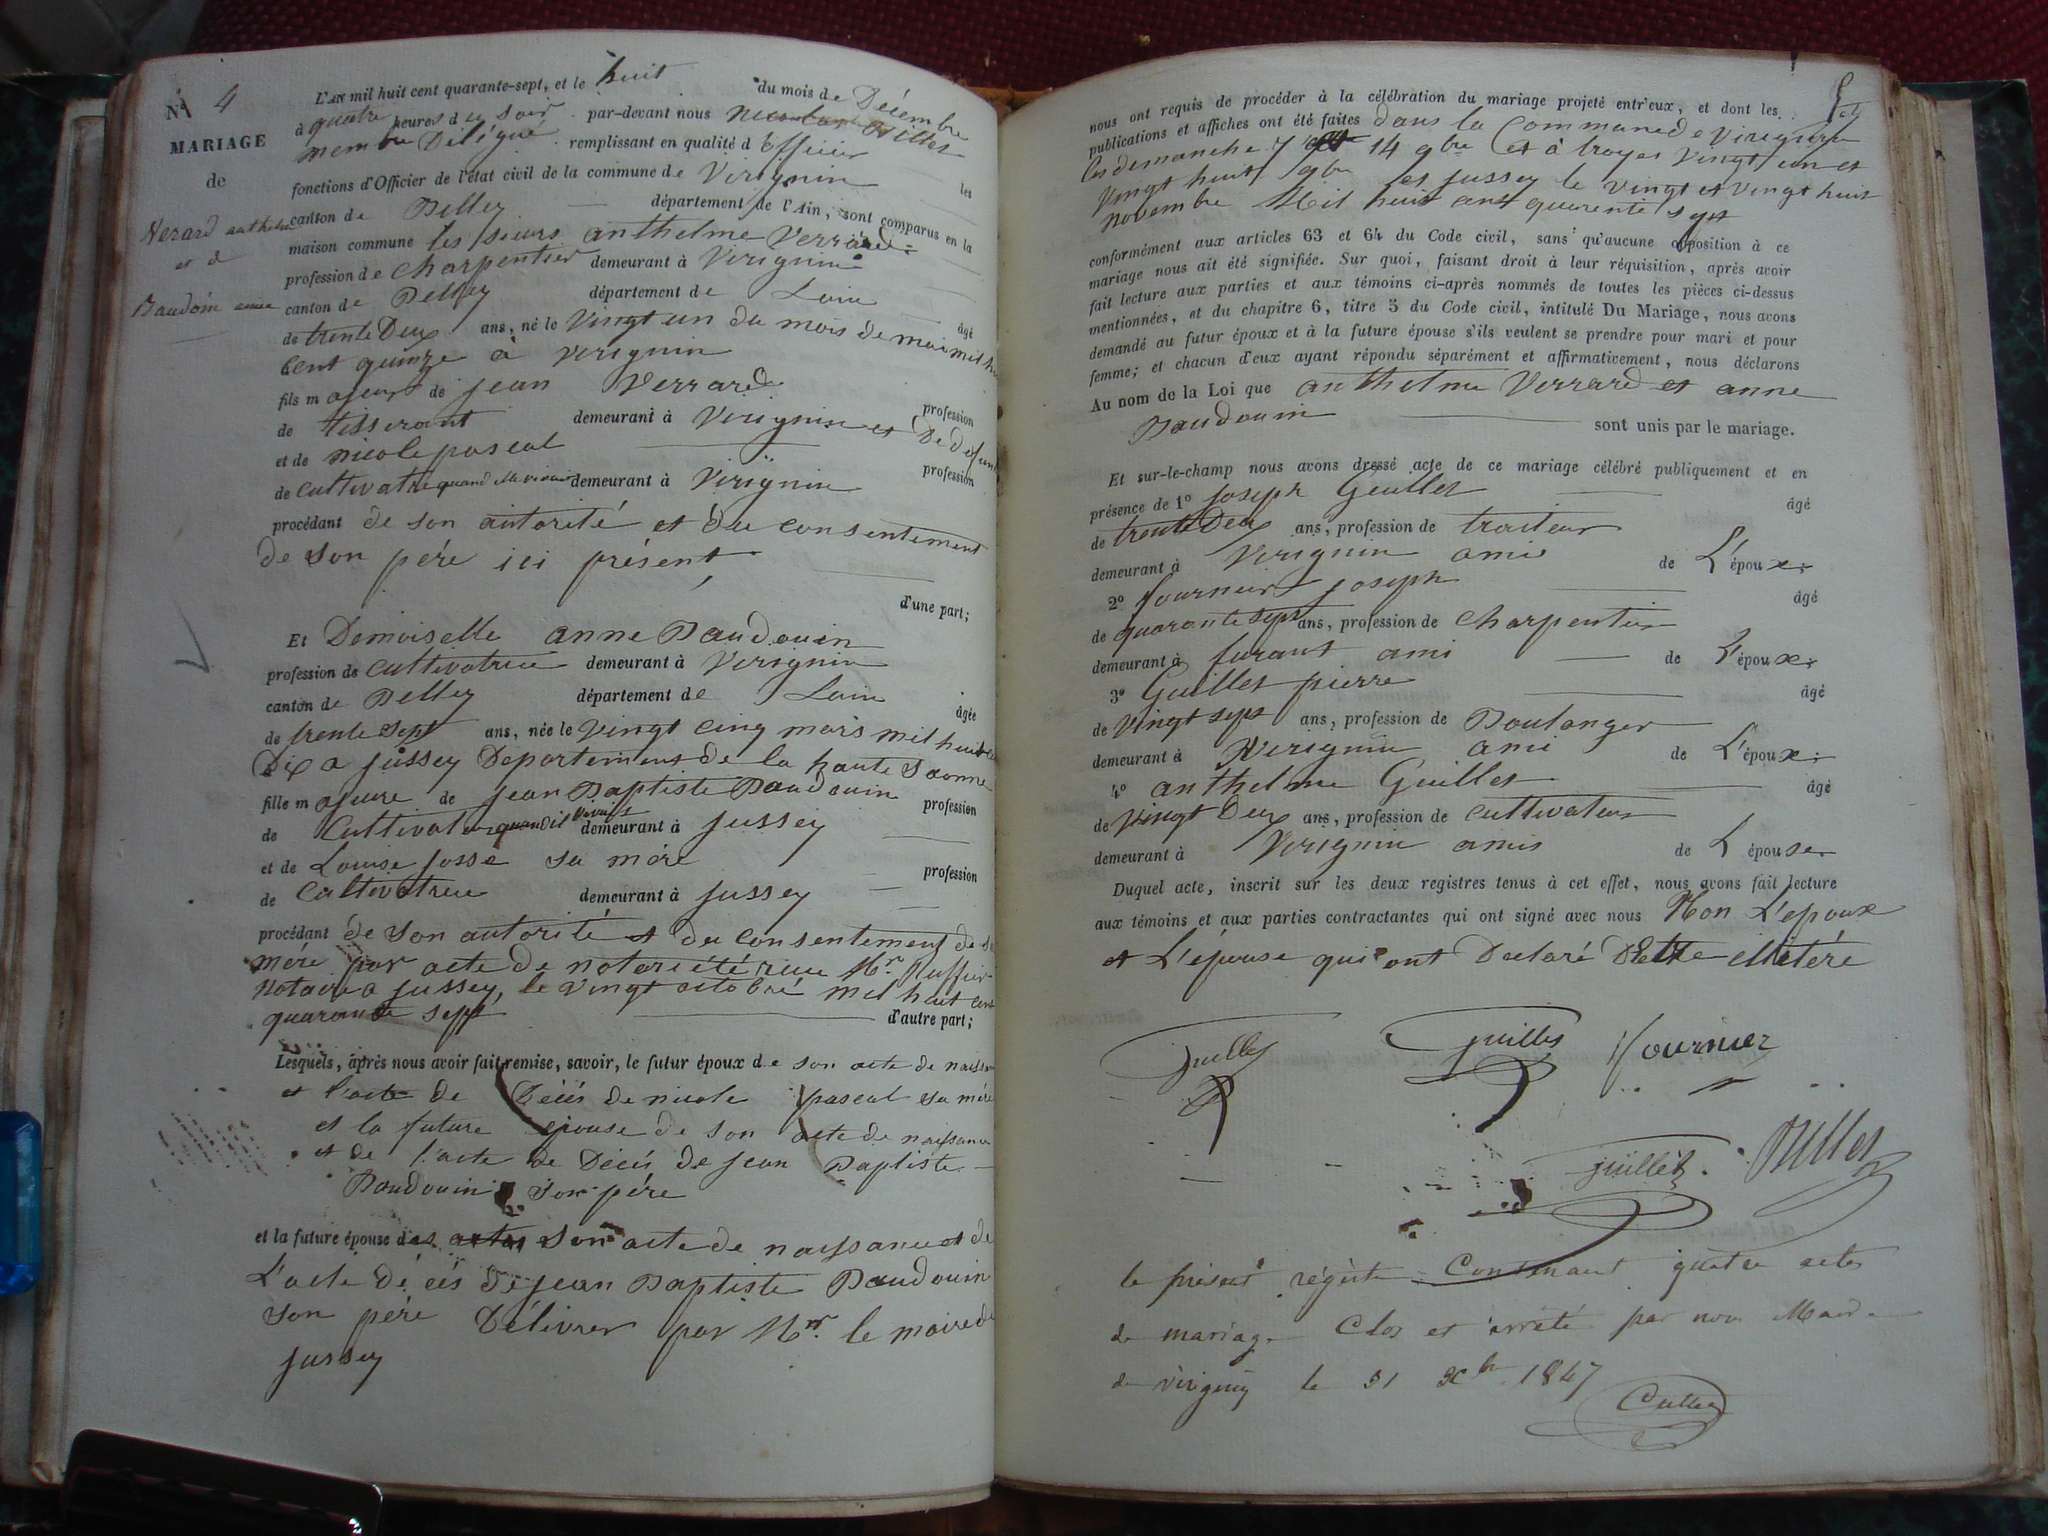 N° 4
MARIAGE
de
Verard anthelme
et d
Baudoin anne
L'AN mil huit cent quarante-sept, et le huit du mois de Décembre
à quatre heures du soir par-devant nous nicolas Billet
membre Délégué remplissant en qualité d'officier les
fonctions d'Officier de l'état civil de la commune de Virignin
canton de Belley département de l'Ain, sont comparus en la
maison commune les sieurs anthelme Verrard
profession de charpentier demeurant à Virignin
canton de Belley département de Lain âgé
de trente Deux ans, né le vingt un du mois de mai mil hui
cent quinze à Virignin
fils majeur de jean Verrard profession
de tisserant demeurant à Virignin et De défunt
et de nicole pascal profession
de cultivatrice quand elle vivait demeurant à Virignin
procédant de son autorité et du consentement
de son père ici présent
d'une part;
Et Demoiselle anne Baudouin
profession de cultivatrice demeurant à Virignin
canton de Belley département de Lain âgée
de trente sept ans, née le vingt cinq mars mil huit cent
Dix a jussey Departement de la haute Saonne
fille majeure de jean Baptiste Baudouin profession
de Cultivateur quand il vivait demeurant à jussey
et de Louise josse sa mère profession
de Cultivatrice demeurant à jussey
procédant de son autorité et du consentement de sa
mère par acte de notoriété reçu Mr. Ruffier
Notaire a jussey, le vingt octobre mil huit cent
quarante sept d'autre part;
Lesquels, après nous avoir fait remise, savoir, le futur époux de son acte de naissance
et l'acte de Décés de nicole pascal sa mère
et la future épouse de son acte de naissance
et de l'acte de Décés de jean Baptiste
Baudouin son père
et la future épouse des actes son acte de naissance et de
L'acte décés de jean Baptiste Baudouin
son père Délivrer par Mr. le maire de
jussey
nous ont requis de procéder à la célébration du mariage projeté entr'eux, et dont les
publications et affiches ont été faites dans la Commune de Virignin
les demanche 7 et 14 9bre et à troyes vingt un et
vingt huit 9bre et jussey le vingt et vingt huit
novembre Mil huit cent quarente sept
conformément aux articles 63 et 64 du Code civil, sans qu'aucune opposition à ce
mariage nous ait été signifiée. Sur quoi, faisant droit à leur réquisition, après avoir
fait lecture aux parties et aux témoins ci-après nommés de toutes les pièces ci-dessus
mentionnées, et du chapitre 6, titre 5 du Code civil, intitulé Du Mariage, nous avons
demandé au futur époux et à la future épouse s'ils veulent se prendre pour mari et pour
femme; et chacun d'eux ayant répondu séparément et affirmativement, nous déclarons
Au nom de la Loi que anthelme Verrard et anne
Baudouin sont unis par le mariage.
Et sur-le-champ nous avons dressé acte de ce mariage célébré publiquement et en
présence de 1° joseph Guillet âgé
de trente Deux ans, profession de traiteur
demeurant à Virignin amie de L'époux
2° fournier joseph âgé
de quarante sept ans, profession de charpentier
demeurant à furant ami de L'époux
3° Guillet pierre âgé
de vingt sept ans, profession de Boulanger
demeurant à Virignin ami de L'époux
4° anthelme Guillet âgé
de vingt Deux ans, profession de cultivateur
demeurant à Virignin amis de L'épouse
Duquel acte, inscrit sur les deux registres tenus à cet effet, nous avons fait lecture
aux témoins et aux parties contractantes qui ont signé avec nous Non L'epoux
et L'épouse qui ont Declaré D'etre elletéré
Guillet Guillet fournier
Guillet Billet
le présent régistre Contenant quatre actes
de mariage Clos et arrêté par nous Maire
de virignin le 31 Xbre 1847